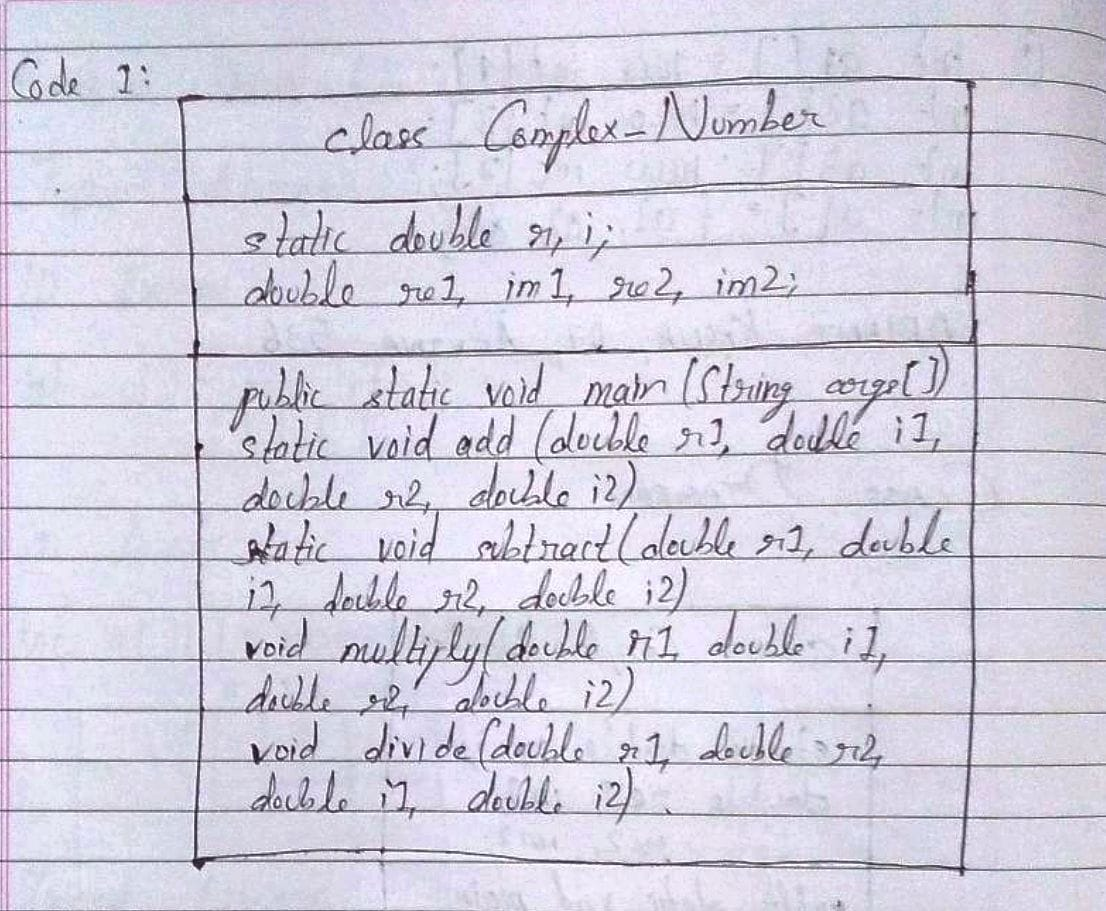 Code 1:
class Complex_Number
static double r, i;
double re1, im1, re2, im2;
public static void main(String args[])
static void add (double r1, double i1,
double r2, double i2)
static void subtract(double r1, double
i1, double r2, double i2)
void multiply(double r1, double i1,
double r2, double i2)
void divide(double r1, double r2,
double i1, double i2).